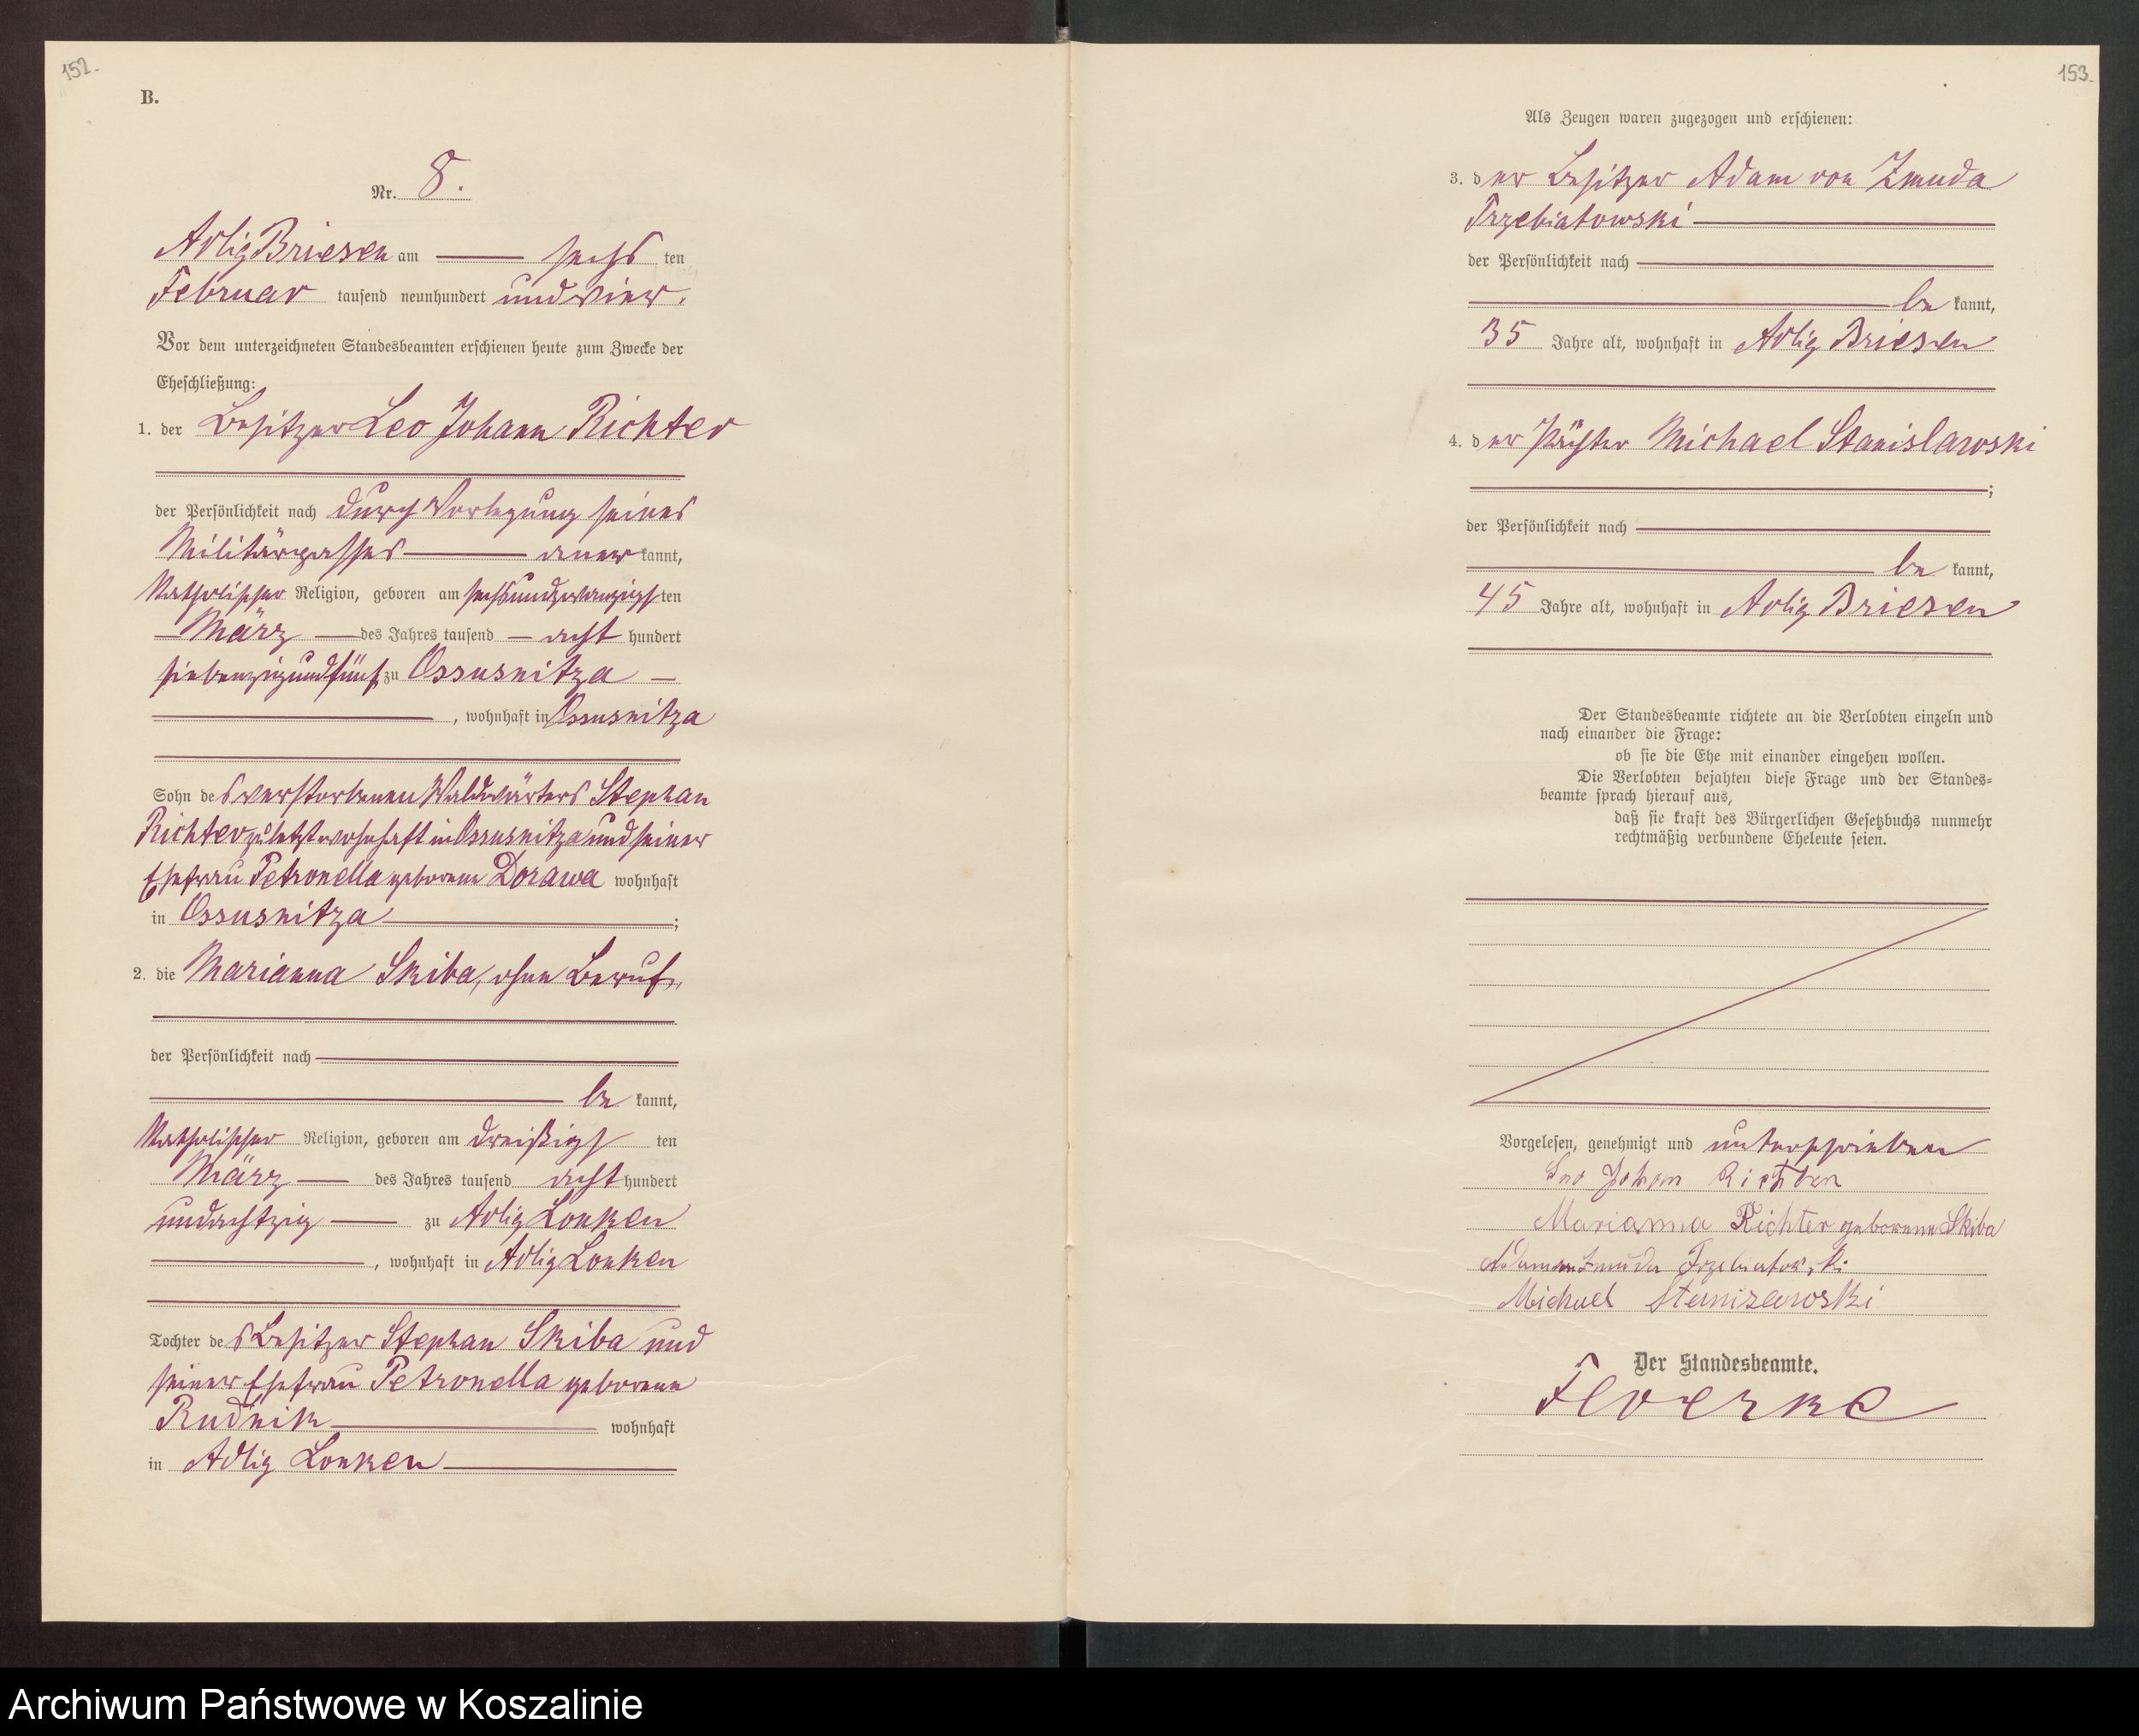 152.
B.
Nr. 8.
Adlig Briesen am sechs ten
Februar tausend neunhundert und vier.
Vor dem unterzeichneten Standesbeamten erschienen heute zum Zwecke der
Eheschließung:
1. der Besitzer Leo Johann Richter
der Persönlichkeit nach durch Vorlegung seines
Militärpasses aner kannt,
katholischer Religion, geboren am sechsundzwanzigsten
März des Jahres tausend acht hundert
siebenzigundfünf zu Ossusnitza
, wohnhaft in Ossusnitza
Sohn des verstorbenen Waldwärters Stephan
Richter zuletzt wohnhaft in Ossusnitza und seiner
Ehefrau Petronella geborene Dorawa wohnhaft
in Ossusnitza ;
2. die Marianna Skiba, ohne Beruf,
der Persönlichkeit nach
be kannt,
katholischer Religion, geboren am dreißigs ten
März des Jahres tausend acht hundert
undachtzig zu Adlig Lonken
, wohnhaft in Adlig Lonken
Tochter des Besitzer Stephan Skiba und
seiner Ehefrau Petronella geborene
Rudnik wohnhaft
in Adlig Lonken
153.
Als Zeugen waren zugezogen und erschienen:
3. der Besitzer Adam von Zmuda
Trzebiatowski
der Persönlichkeit nach
be kannt,
35 Jahre alt, wohnhaft in Adlig Briesen
4. der Pächter Michael Stanislawski
;
der Persönlichkeit nach
be kannt,
45 Jahre alt, wohnhaft in Adlig Briesen
Der Standesbeamte richtete an die Verlobten einzeln und
nach einander die Frage:
ob sie die Ehe mit einander eingehen wollen.
Die Verlobten bejahten diese Frage und der Standes=
beamte sprach hierauf aus,
daß sie kraft des Bürgerlichen Gesetzbuchs nunmehr
rechtmäßig verbundene Eheleute seien.
Vorgelesen, genehmigt und unterschrieben
Leo Johan Richter
Marianna Richter geborene Skiba
Adam von Zmuda Trzebiatowski
Michael Stanizewski
Der Standesbeamte.
Archiwum Państwowe w Koszalinie